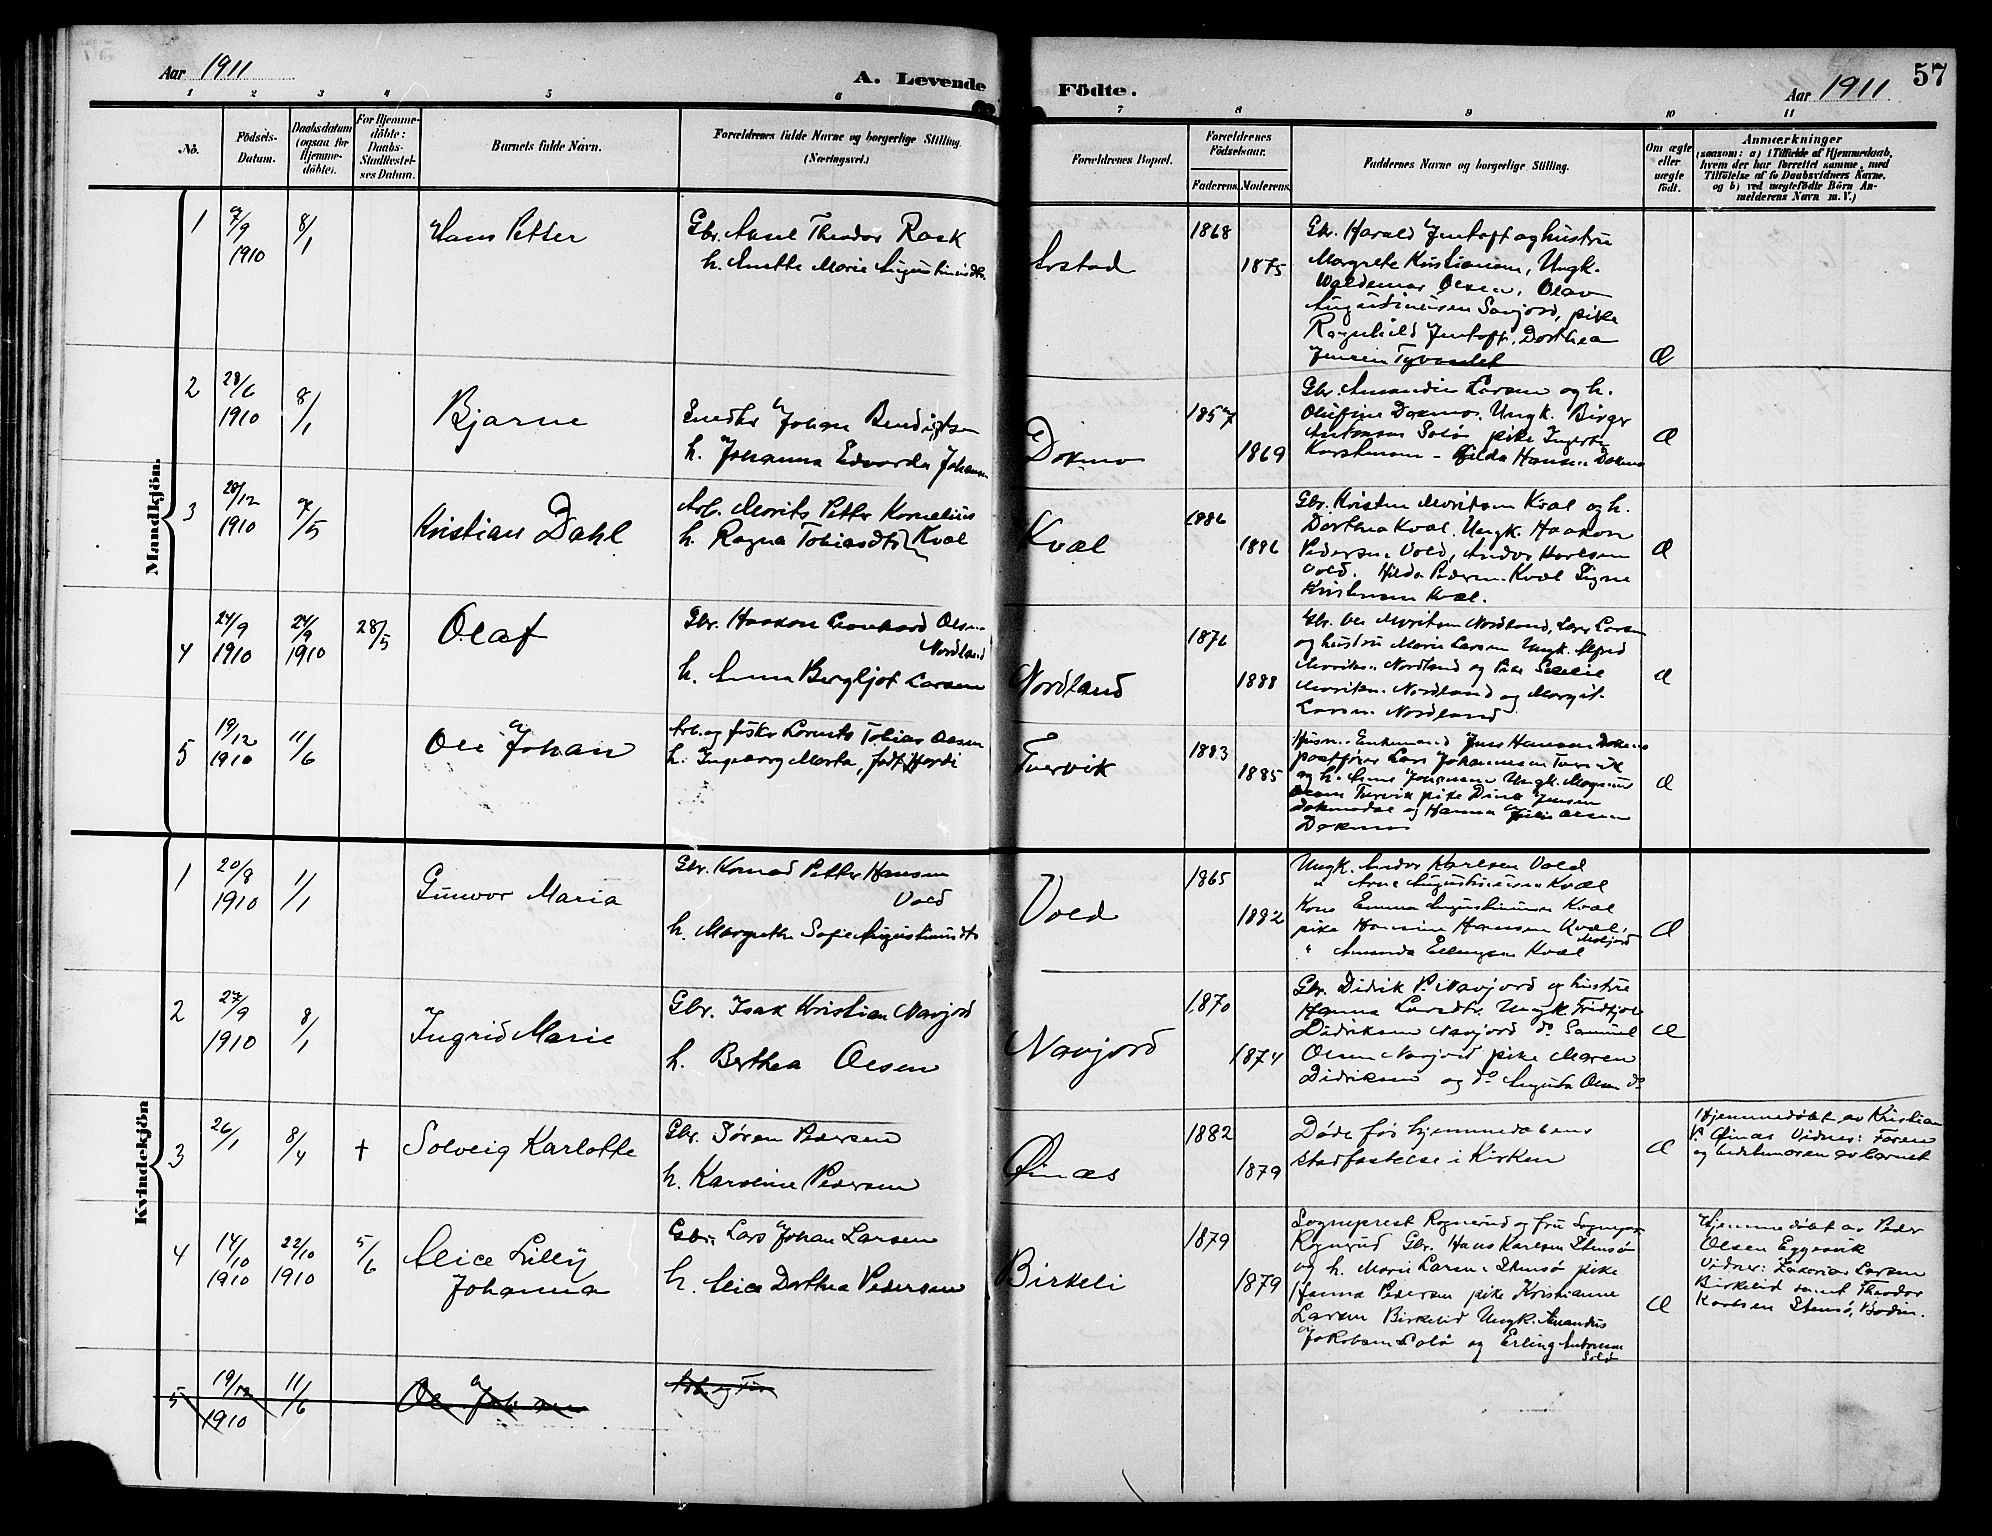 Aar 1911
A. Levende
Födte.
Aar 1911
57
1 2 3 4 5 6 7 8 9 10 11
No.
Födsels-
Datum.
Daabsdatum
(ogsaa for
Hjemme-
döbte).
For Hjemme-
döbte:
Daabs-
Stadfæstel-
ses Datum.
Barnets fulde Navn.
Forældrenes fulde Navne og borgerlige Stilling.
(Næringsvei.)
Forældrenes Bopæl.
Forældrenes
Födselsaar.
Faderens. Moderens.
Faddernes Navne og borgerlige Stilling.
Om ægte
eller
uægte
födt.
Anmærkninger
(saasom: a) i Tilfælde af Hjemmedaab,
hvem der har forrettet samme, med
Tilföielse af to Daabsvidners Navne,
og b) ved uægtefödte Börn An-
melderens Navn m. V.)
Mandkjön.
1
7/9
1910
8/1
Hans Petter
Gbr. Axsel Theodor Rask
h. Anette Marie Augustinusdtr.
Arstad
1868
1875
Gbr. Harald Jentoft og hustru
Margrete Kristiansen, Ungk.
Waldemar Olsen, Olav
Augustinussen Savjord, pike
Ragnhild Jentoft, Dorthea
Jensen Tyvandet
Æ
2
28/6
1910
8/1
Bjarne
Johan Bendigtsen
h. Johanna Edvarda Johansen
Dokmo
1857
1869
Gbr. Larsen og h.
Olufine Dokmo. Ungk. Birger
Antonsen Solø pike
Hansen Dokmo
Æ
3
28/12
1910
7/5
Kristian Dahl
Arb. Morits Petter Kornelius
Kvæl
h. Ragna Tobiasdtr.
Kvæl
1886
1886
Gbr. Kristen Moritsen Kvæl og h.
Dorthea Kvæl. Ungk. Haakon
Pedersen Vold, Andor Karlsen
Vold. Hilda Pedersen Kvæl Signe
Kristensen Kvæl.
Æ
4
24/9
1910
24/9
1910
28/5
Olaf
Gbr. Haakon Leonhard Olsen
Nordland
h. Anna Bergljot Larsen
Nordland
1876
1888
Gbr. Ole Moritsen Nordland, Lars Larsen
og hustru Marie Larsen Ungk. Alfred
Moritsen Nordland og Pike
Moritsen Nordland og Margit
Larsen Nordland
Æ
5
19/12
1910
11/6
Ole Johan
Arb. og fisker Lorents Tobias Olsen
h. Ingeborg Marta, født Hordi
Tverrvik
1883
1885
Husm. Enkemand Jens Hansen Dokmo
postfører Lars Johannesen Tverrvik
og h. Anne Johansen Ungk. Magnus
Olsen Tverrvik pike Dina Jensen
Dokmodal og Hanna Julie Olsen
Dokmo
Æ
Kvindekjön
1
20/8
1910
1/1
Gunvor Maria
Gbr. Konrad Petter Hansen
Vold
h. Margrethe Sofie Augustinusdtr
Vold
1865
1882
Ungk. Andor Karlsen Vold
" Arne Augustinusen Kvæl
Kone Emma Augustinusen Kvæl
pike Hansine Hansen Kvæl,
" Amanda Ellingsen Kvæl
Æ
2
27/9
1910
8/1
Ingrid Marie
Gbr. Isak Kristian Navjord
h. Berthea Olsen
Navjord
1870
1874
Gbr. Didrik P. Navjord og hustru
Hanna Larsdtr. Ungk. Fridtjov
Didriksen Navjord do Samuel
Olsen Navjord pike Maren
Didriksen og do Augusta Olsen do
Æ
3
26/1
8/4
+
Solveig Karlotte
Gbr. Søren Pedersen
h. Karoline Pedersen
Øinæs
1882
1879
Døde før hjemmedaabens
stadfæstelse i Kirken
Æ
Hjemmedøbt av Kristian
P. Øinæs Vidner: Faren
og bedstemoren av barnet
4
14/10
1910
22/10
1910
5/6
Alice Lilly
Johanna
Gbr. Lars Johan Larsen
h. Alice Dorthea Pedersen
Birkeli
1879
1879
Sogneprest Rognerud og fru Sognepr.
Rognerud Gbr. Hans Karlsen Stensø
og h. Marie Larsen Stensø pike
Hanna Pedersen pike Kristianne
Larsen Birkelid Ungk. Amandus
Jakobsen Solø og Erling Antonsen
Solø
Æ
Hjemmedøbt av Peder
Olsen Eggesvik
Vidner: Zakarias Larsen
Birkelid samt Theodor
Karlsen Stensø, Bodin.
5
19/12
1910
11/6
Ole Johan
Arb. og Fis